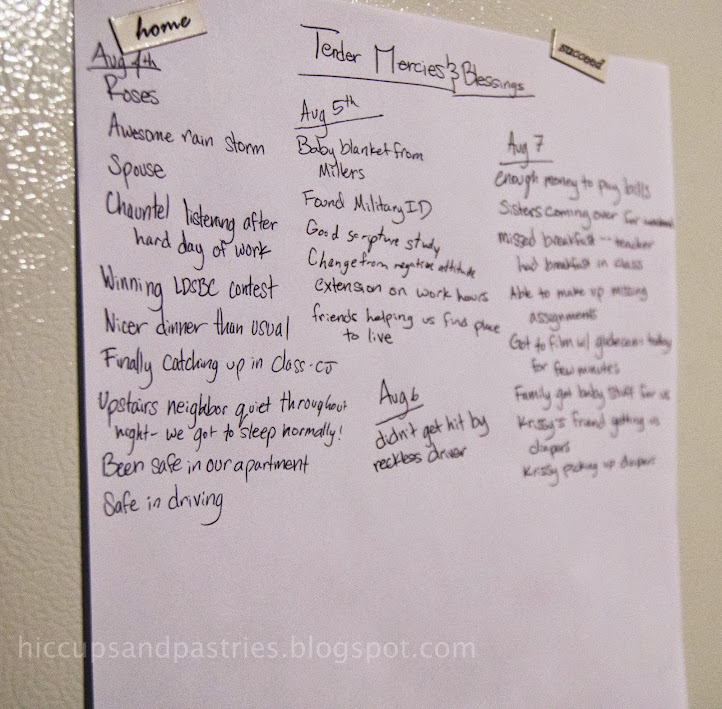 home
succeed
Tender Mercies & Blessings
Aug 4th
Roses
Awesome rain storm
Spouse
Chauntel listening after
hard day of work
Winning LDSBC contest
Nicer dinner than usual
Finally catching up in class-CJ
Upstairs neighbor quiet throughout
night- we got to sleep normally!
Been safe in our apartment
Safe in driving
Aug 5th
Baby blanket from
Millers
Found Military ID
Good scripture study
Change from negative attitude
extension on work hours
friends helping us find place
to live
Aug 6
didn't get hit by
reckless driver
Aug 7
enough money to pay bills
Sisters coming over for weekend
missed breakfast -- teacher
had breakfast in class
Able to make up missing
assignments
Got to film w/ today
for few minutes
Family got baby stuff for us
Krissy's friend getting us
diapers
Krissy picking up diapers
hiccupsandpastries.blogspot.com